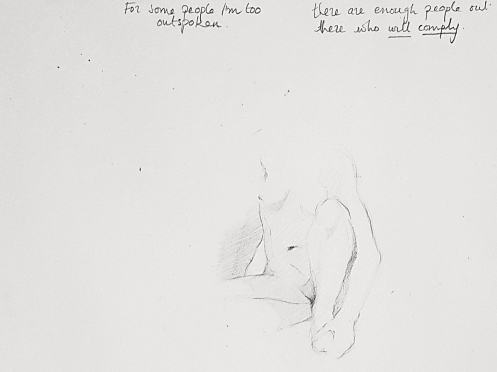 For some people I'm too
outspoken.
there are enough people out
there who will comply.